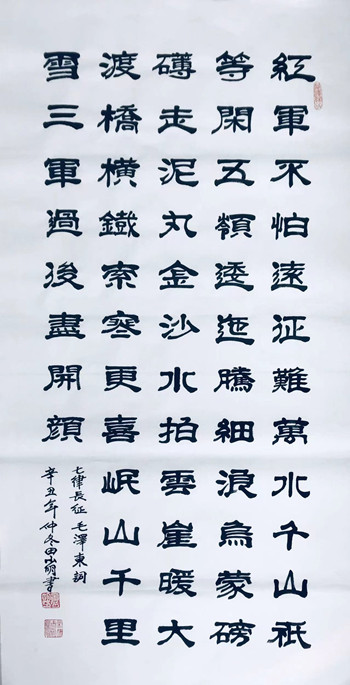 紅軍不怕遠征難萬水千山祇
等閑五領逶迤騰細浪烏蒙磅
礴走泥丸金沙水拍雲崖暖大
渡橋橫鐵索寒更喜岷山千里
雪三軍過後盡開顏
七律長征 毛澤東詞
辛丑年仲冬田小明書